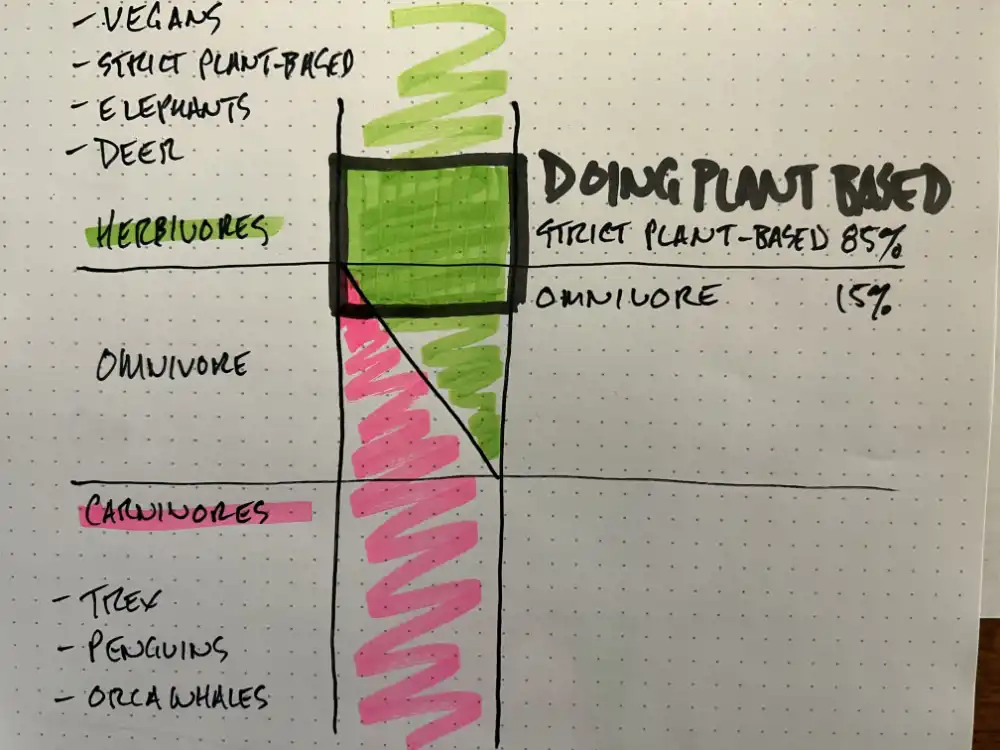 - VEGANS
- STRICT PLANT-BASED
- ELEPHANTS
- DEER
HERBIVORES
DOING PLANT BASED
STRICT PLANT-BASED 85%
OMNIVORE 15%
OMNIVORE
CARNIVORES
- TREX
- PENGUINS
- ORCA WHALES